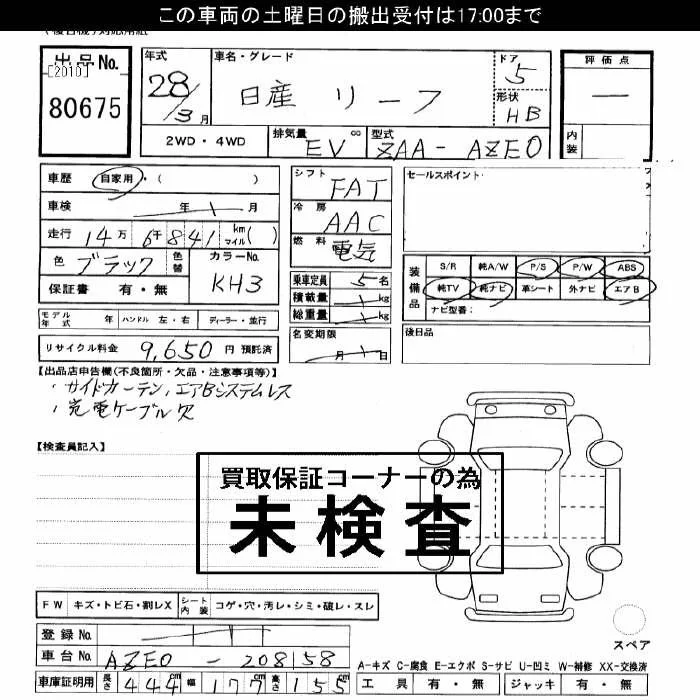 この車両の土曜日の搬出受付は17:00まで
出品No.
[2010]
80675
年式
28/3月
車名・グレード
日産 リーフ
ドア
5
形状
HB
評価点
一
内装
2WD・4WD
排気量
EV
cc
型式
ZAA-AZE0
車歴
自家用・( )
車検 年 月
走行 14万 6千 841 km マイル( )
色 ブラック
色替
カラーNo.
KH3
保証書 有・無
シフト
FAT
冷房
AAC
燃料
電気
乗車定員 5名
積載量 kg
総重量 kg
名変期限
月 日
セールスポイント
装備品
S/R 純A/W P/S P/W ABS
純TV 純ナビ 革シート 外ナビ エアB
ナビ型番:
後日品
モデル年式 年 ハンドル 左・右 ディーラー・並行
リサイクル料金 9,650 円 預託済
【出品店申告欄(不良箇所・欠品・注意事項等)】
・サイドカーテン,エアBシステムレス
・充電ケーブル欠
【検査員記入】
買取保証コーナーの為
未検査
FW キズ・トビ石・割レX シート内装 コゲ・穴・汚レ・シミ・破レ・スレ
登録No.
車台No. AZE0-208158
車庫証明用 長さ 444cm 幅 177cm 高さ 155cm
スペア
A-キズ C-腐食 E-エクボ S-サビ U-凹ミ W-補修 XX-交換済
工具 有・無 ジャッキ 有・無